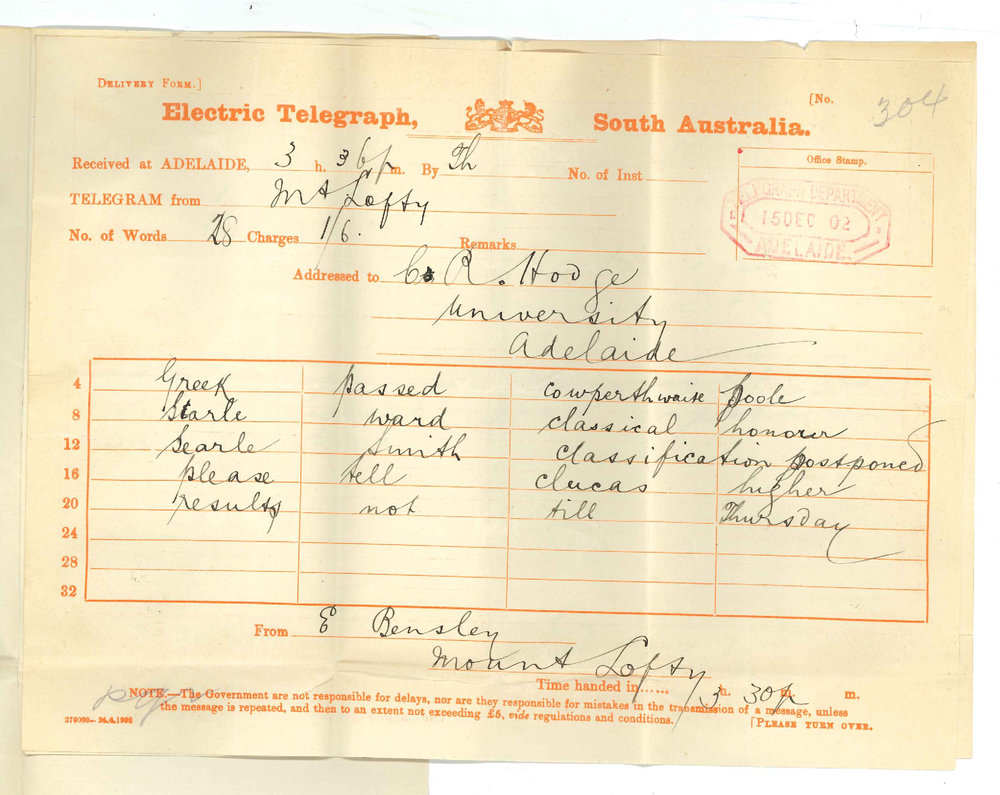 DELIVERY FORM.]
[No. 304
Electric Telegraph, South Australia.
Received at ADELAIDE, 3 h. 36 p m. By Th No. of Inst
Office Stamp.
TELEGRAM from Mt Lofty
TELEGRAPH DEPARTMENT
15 DEC 02
ADELAIDE.
No. of Words 28 Charges 1/6. Remarks
Addressed to C. R. Hodge
University
Adelaide
4 Greek passed cowperthwaite poole
8 Searle ward classical honours
12 Searle Smith classification postponed
16 please tell clucas higher
20 results not till Thursday
24
28
32
From E Bensley
Mount Lofty
Time handed in...... 3 h. 30 p m. m.
NOTE.—The Government are not responsible for delays, nor are they responsible for mistakes in the transmission of a message, unless
the message is repeated, and then to an extent not exceeding £5, vide regulations and conditions.
[PLEASE TURN OVER.